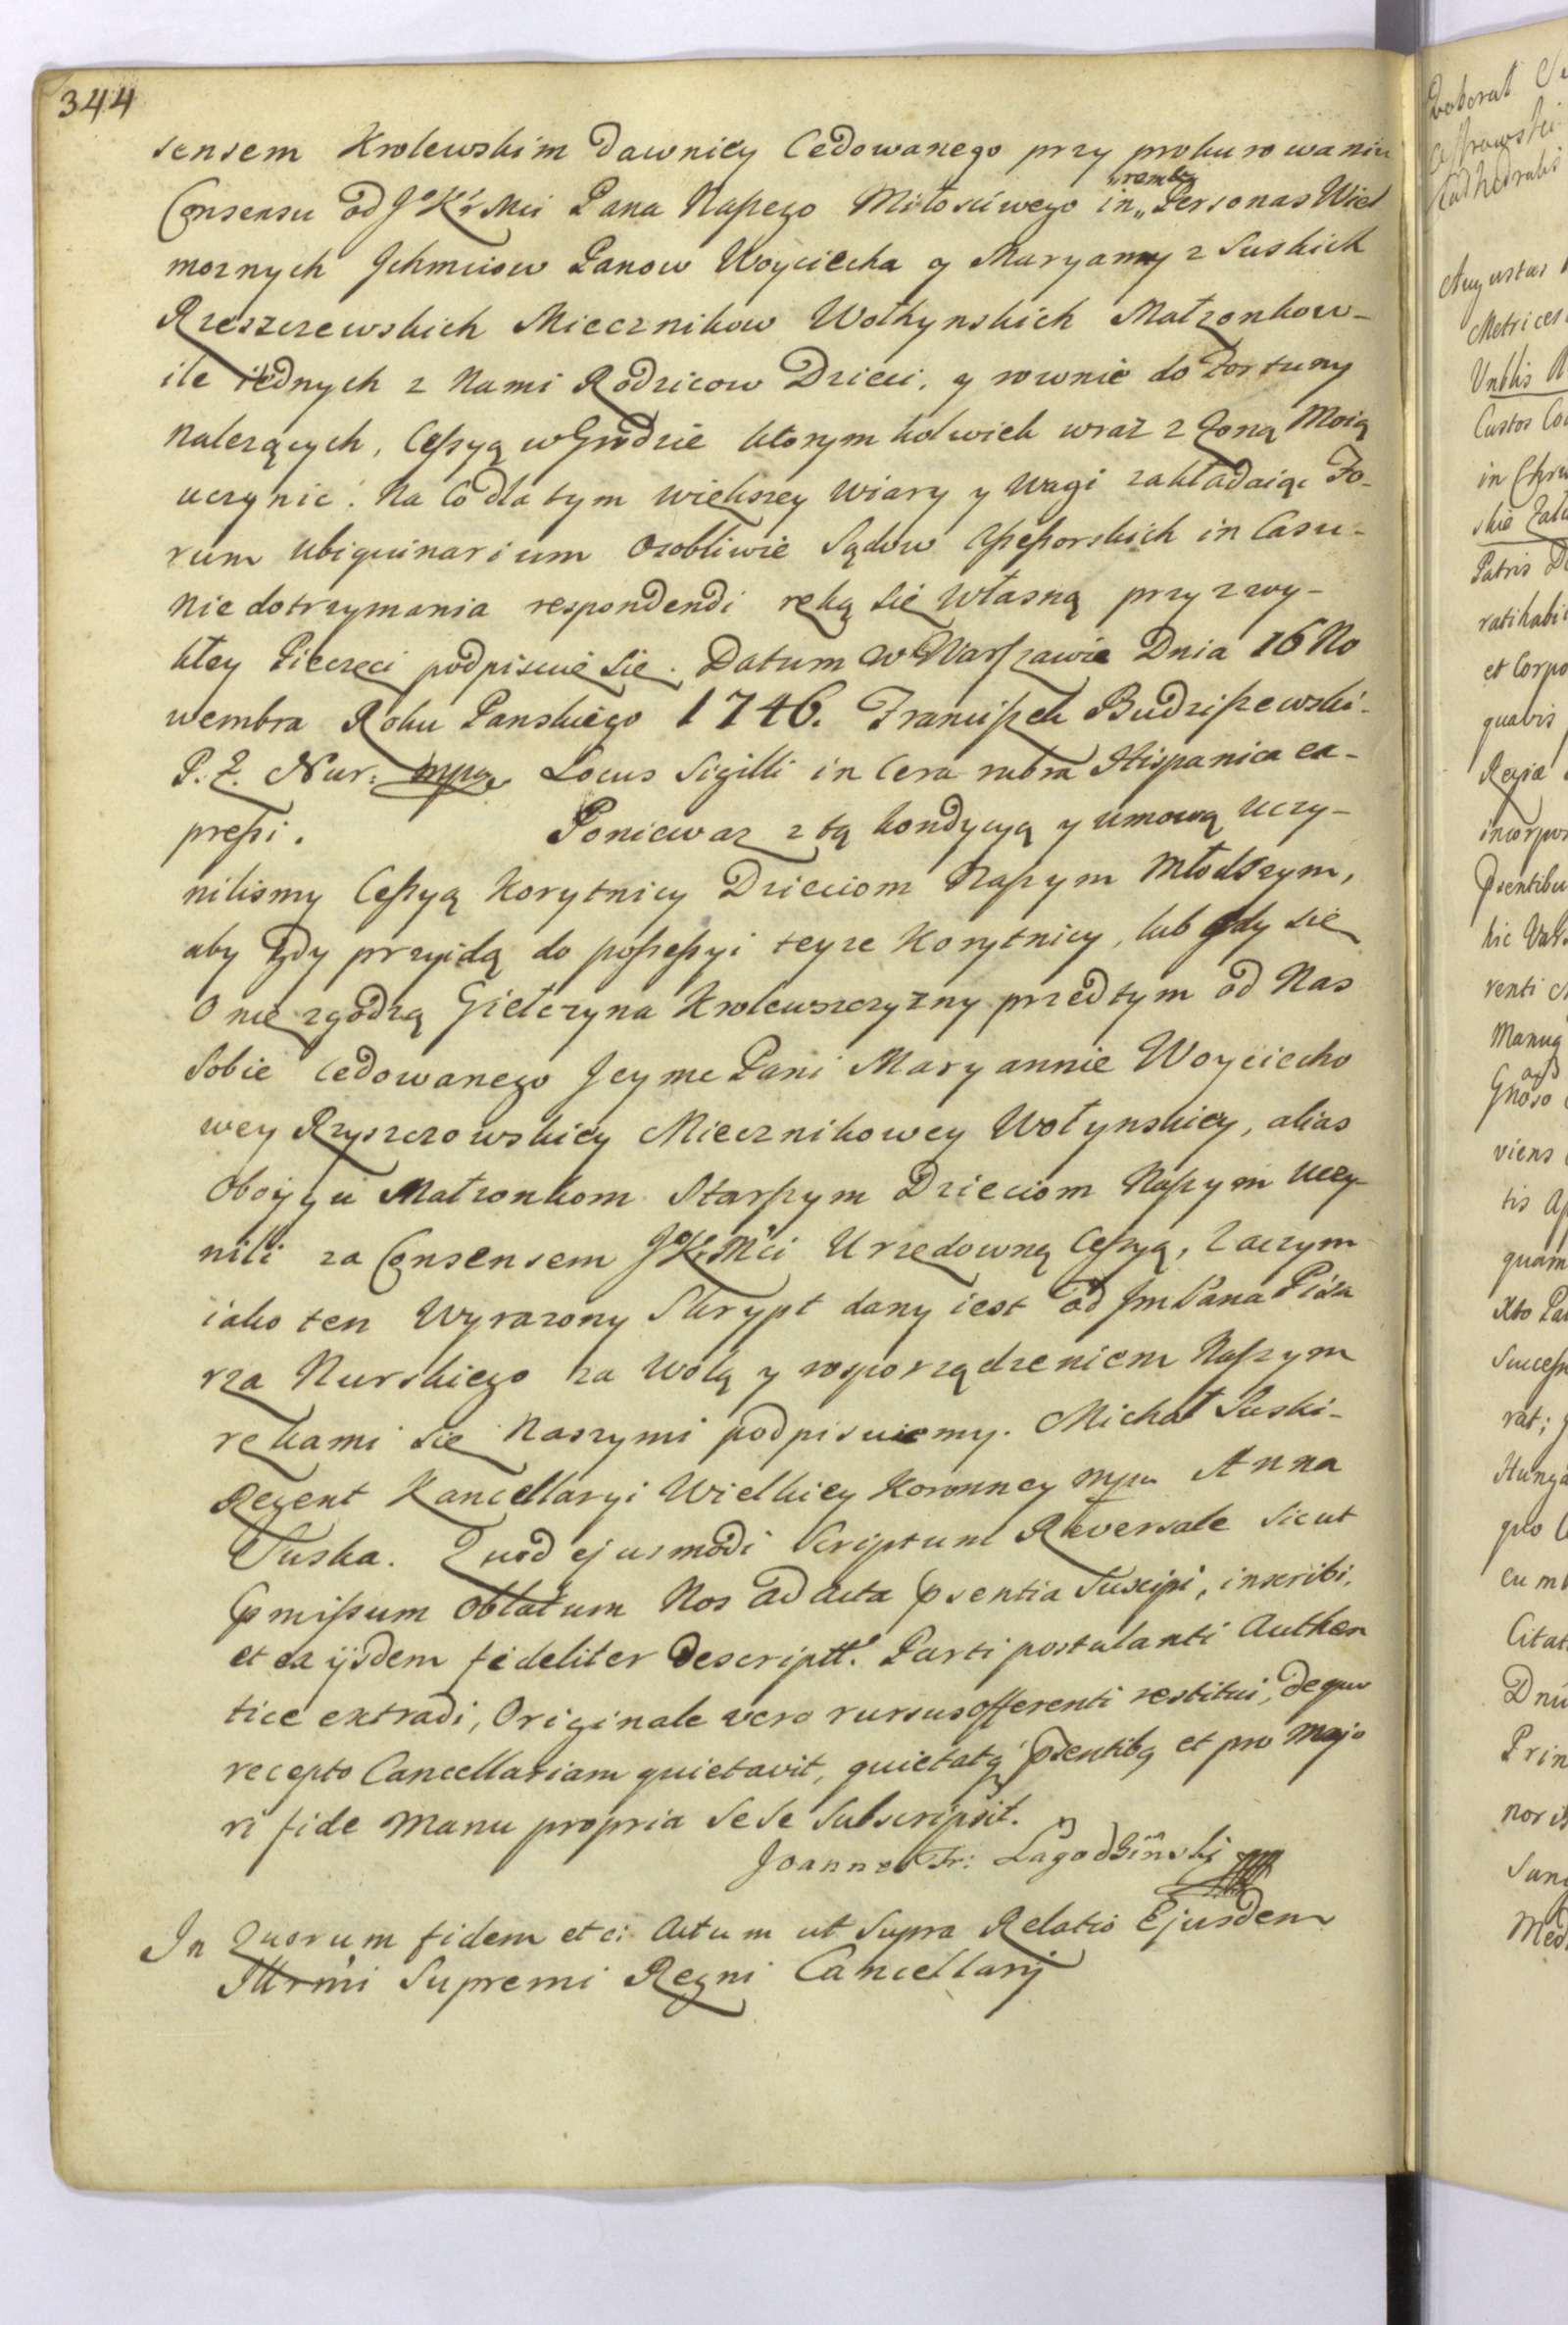 344
sensem Krolewskim dawnicy Cedowanego przy prokurowaniu
Consensu od JoKr Mci Pana Naszego Miłosciwego in„Personas Wiel
moznych Jchmciow Panow Woyciecha y Maryanny z Suskich
Rzeszczewskich Miecznikow Wołhynskich Małzonkow-
ile iednych z Nami Rodzicow Dzieci, y rownie do Fortuny
Nalezących, Cessyą w Grodzie ktorym kolwiek wraz z Zoną Moią
uczynic. Na Co dla tym większey wiary y wagi zakładaiąc Fo-
rum ubiquinarium Osobliwie Sądow Assessorskich in Casu-
nie dotrzymania respondendi ręką się własną przy zwy-
kłey Pieczęci podpisuię się. Datum w Warszawie Dnia 16 No
wembra Roku Panskiego 1746. Franciszek Budziszewski-
P. Z. Nur: mpa Locus Sigilli in Cera rubra Hispanica ex-
pressi. Poniewaz z tą kondycyą y umową uczy-
nilismy Cessyą Korytnicy Dzieciom Naszym Młodszym,
aby gdy przyidą do possessyi teyze Korytnicy, lub gdy się
O nię zgodzą Giełczyna Krolewszczyzny przed tym od Nas
Sobie cedowanego Jeymc Pani Maryannie Woyciecho
wey Rzyszczowskiey Miecznikowey Wołynskiey, alias
Oboygu Małzonkom Starszym Dzieciom Naszym uczy-
nili za Consensem JoKr Mci Urzędowną Cessyą, Zaczym
iako ten Wyrazony Skrypt dany iest od Jm Pana Pisa
rza Nurskiego za Wolą y rosporządzeniem Naszym
rękami się Naszymi podpisuiemy. Michał Suski-
Regent Kancellaryi Wielkiey Koronney mpa Anna
Suska. Quod ejusmodi Scriptum Reversale sicut
pmissum Oblatum Nos ad acta psentia Suscipi, inscribi,
et ex ijsdem fideliter descriptt. Parti postulanti Authen
tice extradi, Originale vero rursus offerenti restitui, de quo
recepto Cancellariam quietavit, quietatq psentibq et pro majo
ri fide Manu propria Sese Subscripsit.
Joannes Fr: Łagodziński mp
In Quorum fidem etc: Actum ut Supra Relatio Ejusdem
Illrmi Supremi Regni Cancellarij